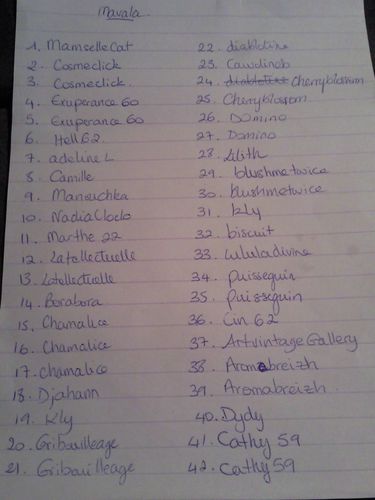 Mavala.
1. MamselleCat
2. Cosmeclick
3. Cosmeclick.
4. Exuperance 60
5. Exuperance 60
6. Hell 62
7. adeline L
8. Camille
9. Manouchka
10. NadiaClodo
11. Marthe 22
12. Latellectuelle
13. Latellectuelle
14. Borabora
15. Chamalice
16. Chamalice
17. Chamalice
18. Djahann
19. kly
20. Gribouilleage
21. Gribouilleage
22. diablotine
23. Cawdinob
24. Cherryblossom
25. Cherryblossom
26. Domino
27. Domino
28. Lilith
29. blushmetwice
30. blushmetwice
31. kly
32. biscuit
33. Lululadivine
34. Puisseguin
35. Puisseguin
36. Cin 62
37. Artvintage Gallery
38. Aromabreizh
39. Aromabreizh.
40. Dydy
41. Cathy 59
42. Cathy 59